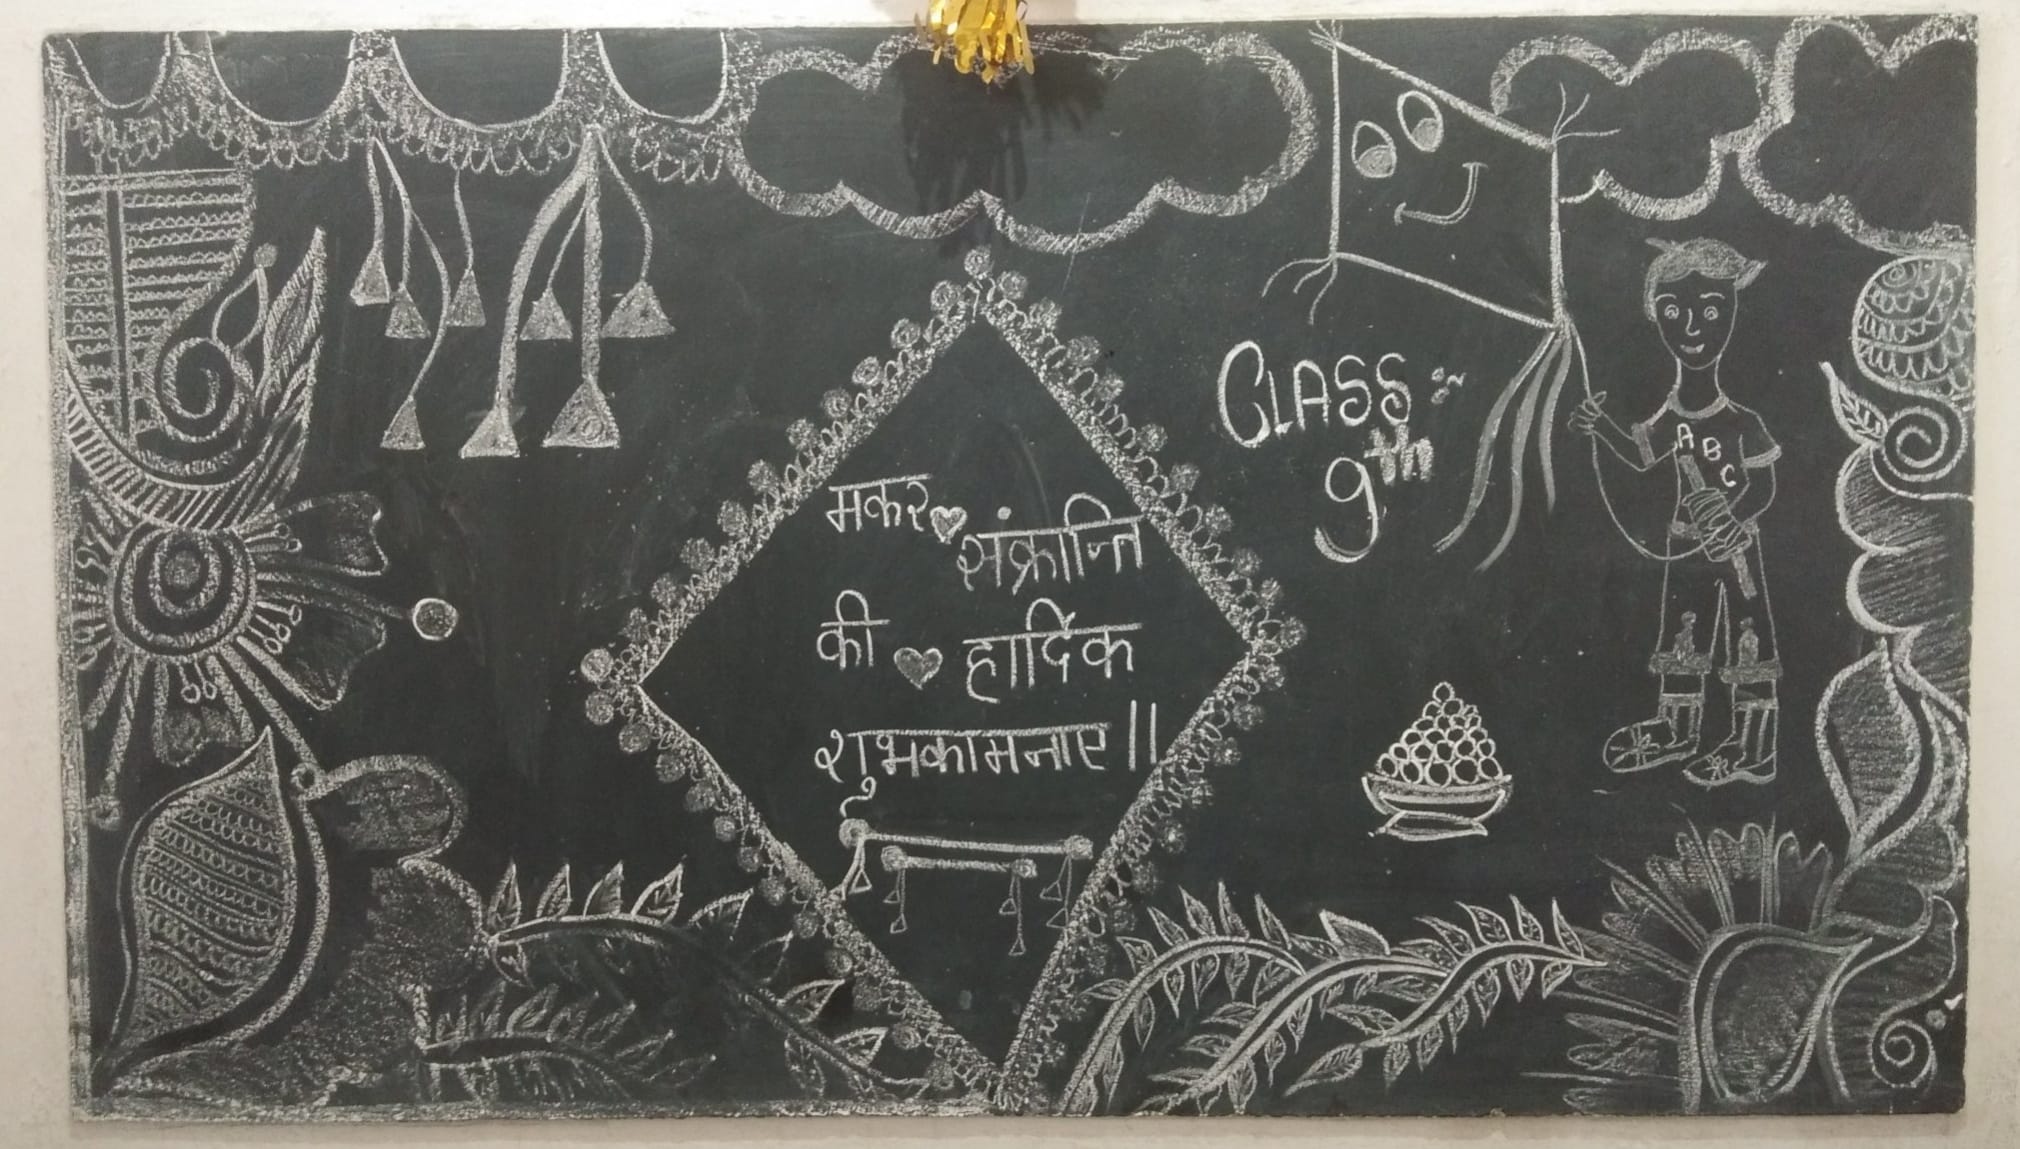 मकर
संक्रान्ति
की हार्दिक
शुभकामनाए ||
CLASS :~
9th
A B C